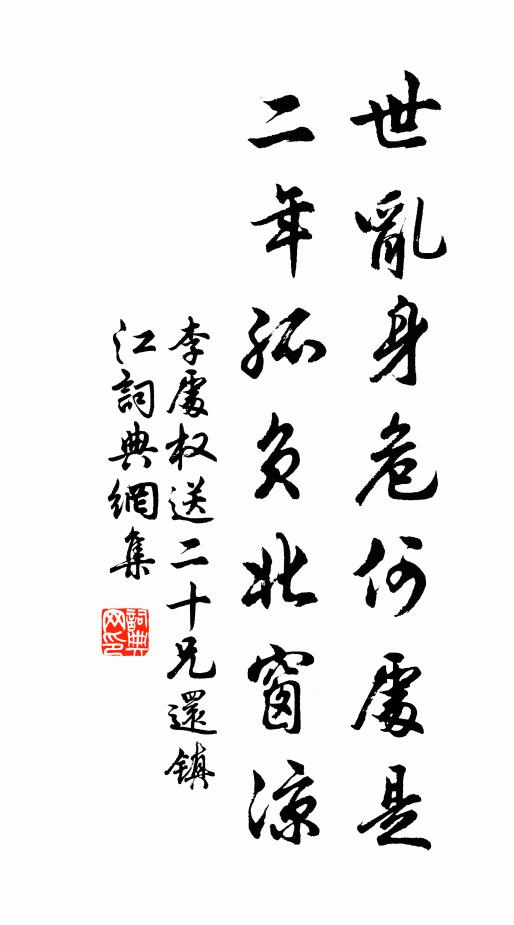 世亂身危何處是
二年孤負北窗涼
李處权送二十兄還鎮
江詞典網集
詞典
网印